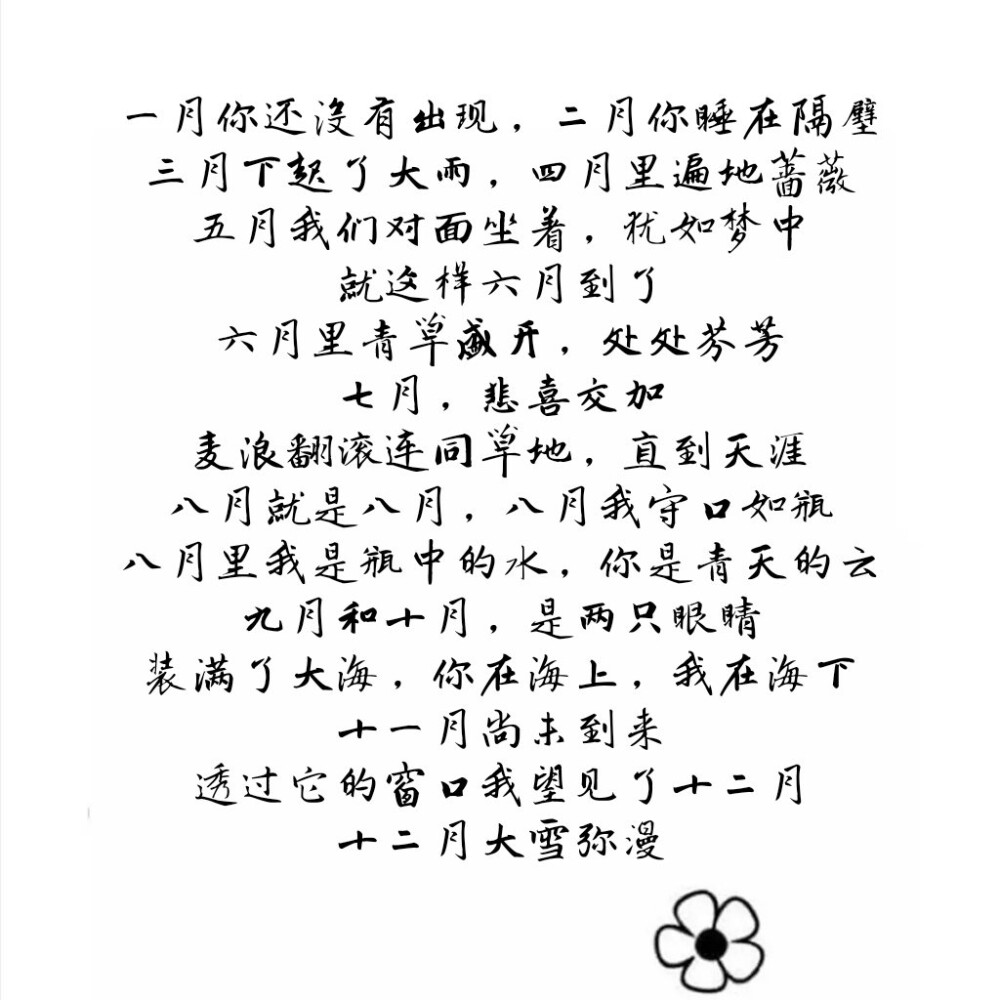 一月你还没有出现，二月你睡在隔壁
三月下起了大雨，四月里遍地蔷薇
五月我们对面坐着，犹如梦中
就这样六月到了
六月里青草盛开，处处芬芳
七月，悲喜交加
麦浪翻滚连同草地，直到天涯
八月就是八月，八月我守口如瓶
八月里我是瓶中的水，你是青天的云
九月和十月，是两只眼睛
装满了大海，你在海上，我在海下
十一月尚未到来
透过它的窗口我望见了十二月
十二月大雪弥漫